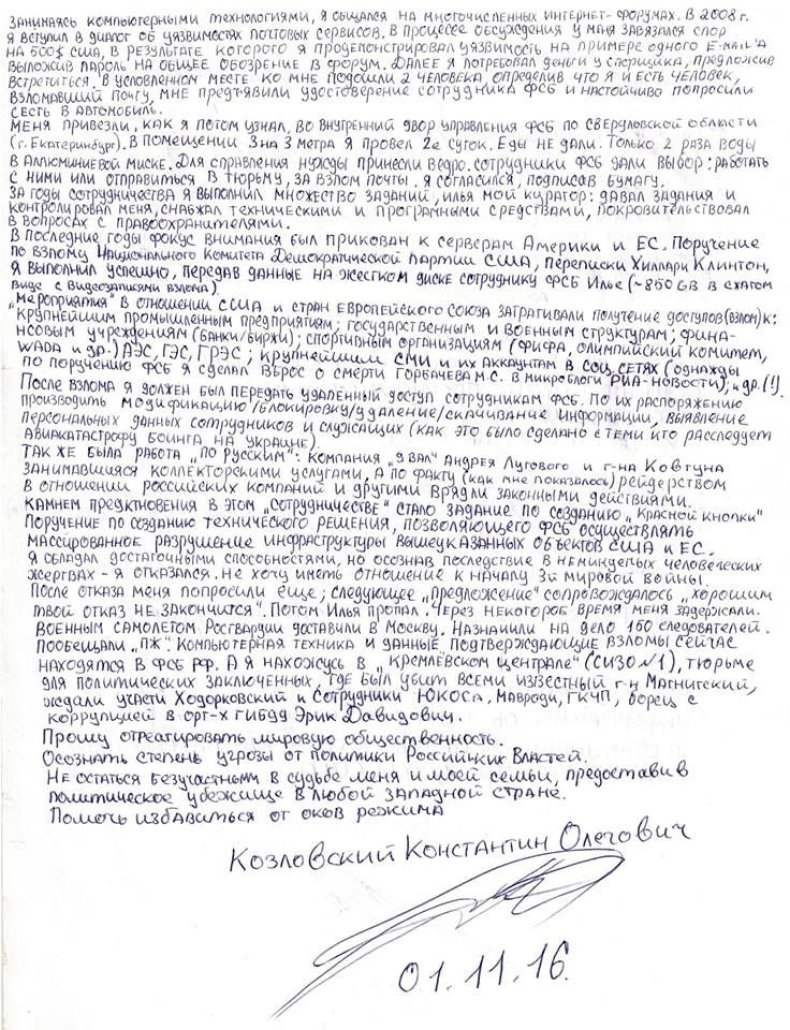 Занимаясь компьютерными технологиями, я общался на многочисленных интернет-форумах. В 2008 г.
я вступил в диалог об уязвимостях почтовых сервисов. В процессе обсуждения у меня завязался спор
на 500$ США, в результате которого я продемонстрировал уязвимость на примере одного E-mail'а
выложив пароль на общее обозрение в форум. Далее я потребовал деньги у спорщика, предложив
встретиться. В условленном месте ко мне подошли 2 человека, определив что я и есть человек,
взломавший почту, мне предъявили удостоверение сотрудника ФСБ и настойчиво попросили
сесть в автомобиль.
Меня привезли, как я потом узнал, во внутренний двор управления ФСБ по Свердловской области
(г. Екатеринбург). В помещении 3 на 3 метра я провел 2е суток. Еды не дали. Только 2 раза воды
в аллюминиевой миске. Для справления нужды принесли ведро. Сотрудники ФСБ дали выбор: работать
с ними или отправиться в тюрьму, за взлом почты. Я согласился, подписав бумагу.
За годы сотрудничества я выполнил множество заданий, Илья мой куратор: давал задания и
контролировал меня, снабжал техническими и програмными средствами, покровительствовал
в вопросах с правоохранителями.
В последние годы фокус внимания был прикован к серверам Америки и ЕС. Поручение
по взлому Национального Комитета Демократической партии США, переписки Хиллари Клинтон,
я выполнил успешно, передав данные на жестком диске сотруднику ФСБ Илье (~850 GB в сжатом
виде с видеозаписями взлома)
„Мероприятия" в отношении США и стран Европейского Союза затрагивали получение доступов (взлом) к:
крупнейшим промышленным предприятиям; государственным и военным структурам; фина-
нсовым учреждениям (банки/биржи); спортивным организациям (ФИФА, Олимпийский комитет,
WADA и др.) АЭС, ГЭС, ГРЭС; крупнейшим СМИ и их аккаунтам в соц. сетях (однажды
по поручению ФСБ я сделал вброс о смерти Горбачева М.С. в микроблоги РИА-новости); и др. (!).
После взлома я должен был передать удаленный доступ сотрудникам ФСБ. По их распоряжению
производить модификацию/блокировку/удаление/скачивание информации, выявление
персональных данных сотрудников и служащих (как это было сделано с теми кто расследует
авиакатастрофу Боинга на Украине).
Так же была работа „по русским": компания „9 вал" Андрея Лугового и г-на Ковтуна
занимавшиеся коллекторскими услугами, а по факту (как мне показалось) рейдерством
в отношении российских компаний и другими врядли законными действиями.
Камнем предктновения в этом „сотрудничестве" стало задание по созданию „Красной кнопки"
Поручение по созданию технического решения, позволяющего ФСБ осуществлять
массированное разрушение инфраструктуры вышеуказанных объектов США и ЕС.
Я обладал достаточными способностями, но осознав последствие в неминуемых человеческих
жертвах - я отказался. Не хочу иметь отношение к началу 3й мировой войны.
После отказа меня попросили еще; следующее „предложение" сопровождалось „хорошим
твой отказ не закончится". Потом Илья пропал. Через некотороб время меня задержали.
Военным самолетом Росгвардии доставили в Москву. Назначили на дело 150 следователей.
Пообещали „ПЖ". Компьютерная техника и данные подтверждающие взломы сейчас
находятся в ФСБ РФ. А я нахожусь в „Кремлёвском централе" (СИЗО №1), тюрьме
для политических заключенных, где был убит всеми известный г-н Магнитский,
ждали участи Ходорковский и сотрудники ЮКОСа, Мавроди, ГКЧП, борец с
коррупцией в орг-х ГИБДД Эрик Давидович.
Прошу отреагировать мировую общественность.
Осознать степень угрозы от политики Российских Властей.
Не остаться безучастными в судьбе меня и моей семьи, предоставив
политическое убежище в любой западной стране.
Помочь избавиться от оков режима
Козловский Константин Олегович
01.11.16.